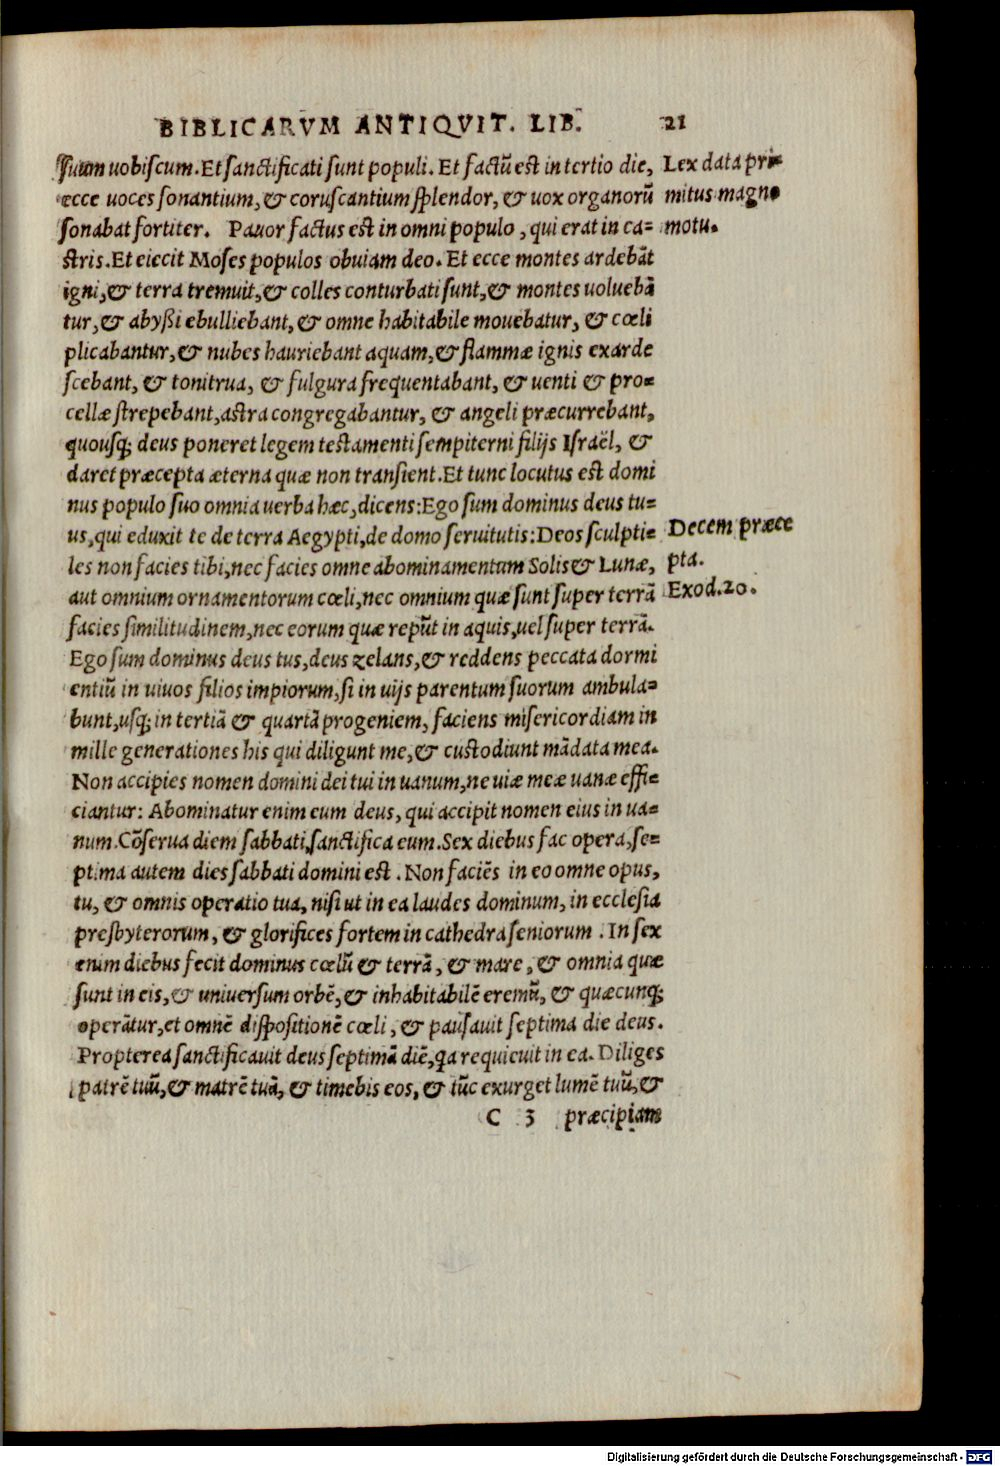 BIBLICARVM ANTIQVIT. LIB. 21
suum uobiscum. Et sanctificati sunt populi. Et factũ est in tertio die,
ecce uoces sonantium, & coruscantium splendor, & uox organorũ
sonabat fortiter. Pauor factus est in omni populo, qui erat in ca-
stris. Et eiecit Moses populos obuiam deo. Et ecce montes ardebãt
igni, & terra tremuit, & colles conturbati sunt, & montes uoluebã
tur, & abyßi ebulliebant, & omne habitabile mouebatur, & cœli
plicabantur, & nubes hauriebant aquam, & flammæ ignis exarde
scebant, & tonitrua, & fulgura frequentabant, & uenti & pro-
cellæ strepebant, astra congregabantur, & angeli præcurrebant,
quousq; deus poneret legem testamenti sempiterni filijs Israël, &
daret præcepta æterna quæ non transient. Et tunc locutus est domi
nus populo suo omnia uerba hæc, dicens: Ego sum dominus deus tu-
us, qui eduxit te de terra Aegypti, de domo seruitutis: Deos sculpti-
les non facies tibi, nec facies omne abominamentum Solis & Lunæ,
aut omnium ornamentorum cœli, nec omnium quæ sunt super terrã
facies similitudinem, nec eorum quæ repũt in aquis, uel super terrã.
Ego sum dominus deus tus, deus zelans, & reddens peccata dormi
entiũ in uiuos filios impiorum, si in uijs parentum suorum ambula-
bunt, usq; in tertiã & quartã progeniem, faciens misericordiam in
mille generationes his qui diligunt me, & custodiunt mãdata mea.
Non accipies nomen domini dei tui in uanum, ne uiæ meæ uanæ effi-
ciantur: Abominatur enim eum deus, qui accipit nomen eius in ua-
num. Cõserua diem sabbati, sanctifica eum. Sex diebus fac opera, se-
ptima autem dies sabbati domini est. Non faciẽs in eo omne opus,
tu, & omnis operatio tua, nisi ut in ea laudes dominum, in ecclesia
presbyterorum, & glorifices fortem in cathedra seniorum. In sex
enim diebus fecit dominus cœlũ & terrã, & mare, & omnia quæ
sunt in eis, & uniuersum orbẽ, & inhabitabilẽ eremũ, & quæcunq;
operãtur, et omnẽ dispositionẽ cœli, & pausauit septima die deus.
Propterea sanctificauit deus septimã diẽ, qa requieuit in ea. Diliges
patrẽ tuũ, & matrẽ tuã, & timebis eos, & tũc exurget lumẽ tuũ, &
C 3 præcipiam
Lex data pri-
mitus magno
motu.
Decem præce
pta.
Exod. 20.
Digitalisierung gefördert durch die Deutsche Forschungsgemeinschaft - DFG